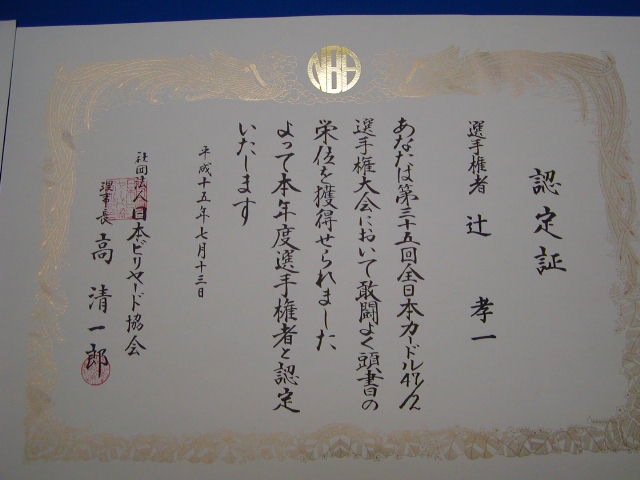 NBA
認定証
選手権者 辻 孝一
あなたは第三十五回全日本カードル47/2
選手権大会において敢闘よく頭書の
栄位を獲得せられました
よって本年度選手権者と認定
いたします
平成十五年七月十三日
社団法人日本ビリヤード協会
理事長 高 清一郎